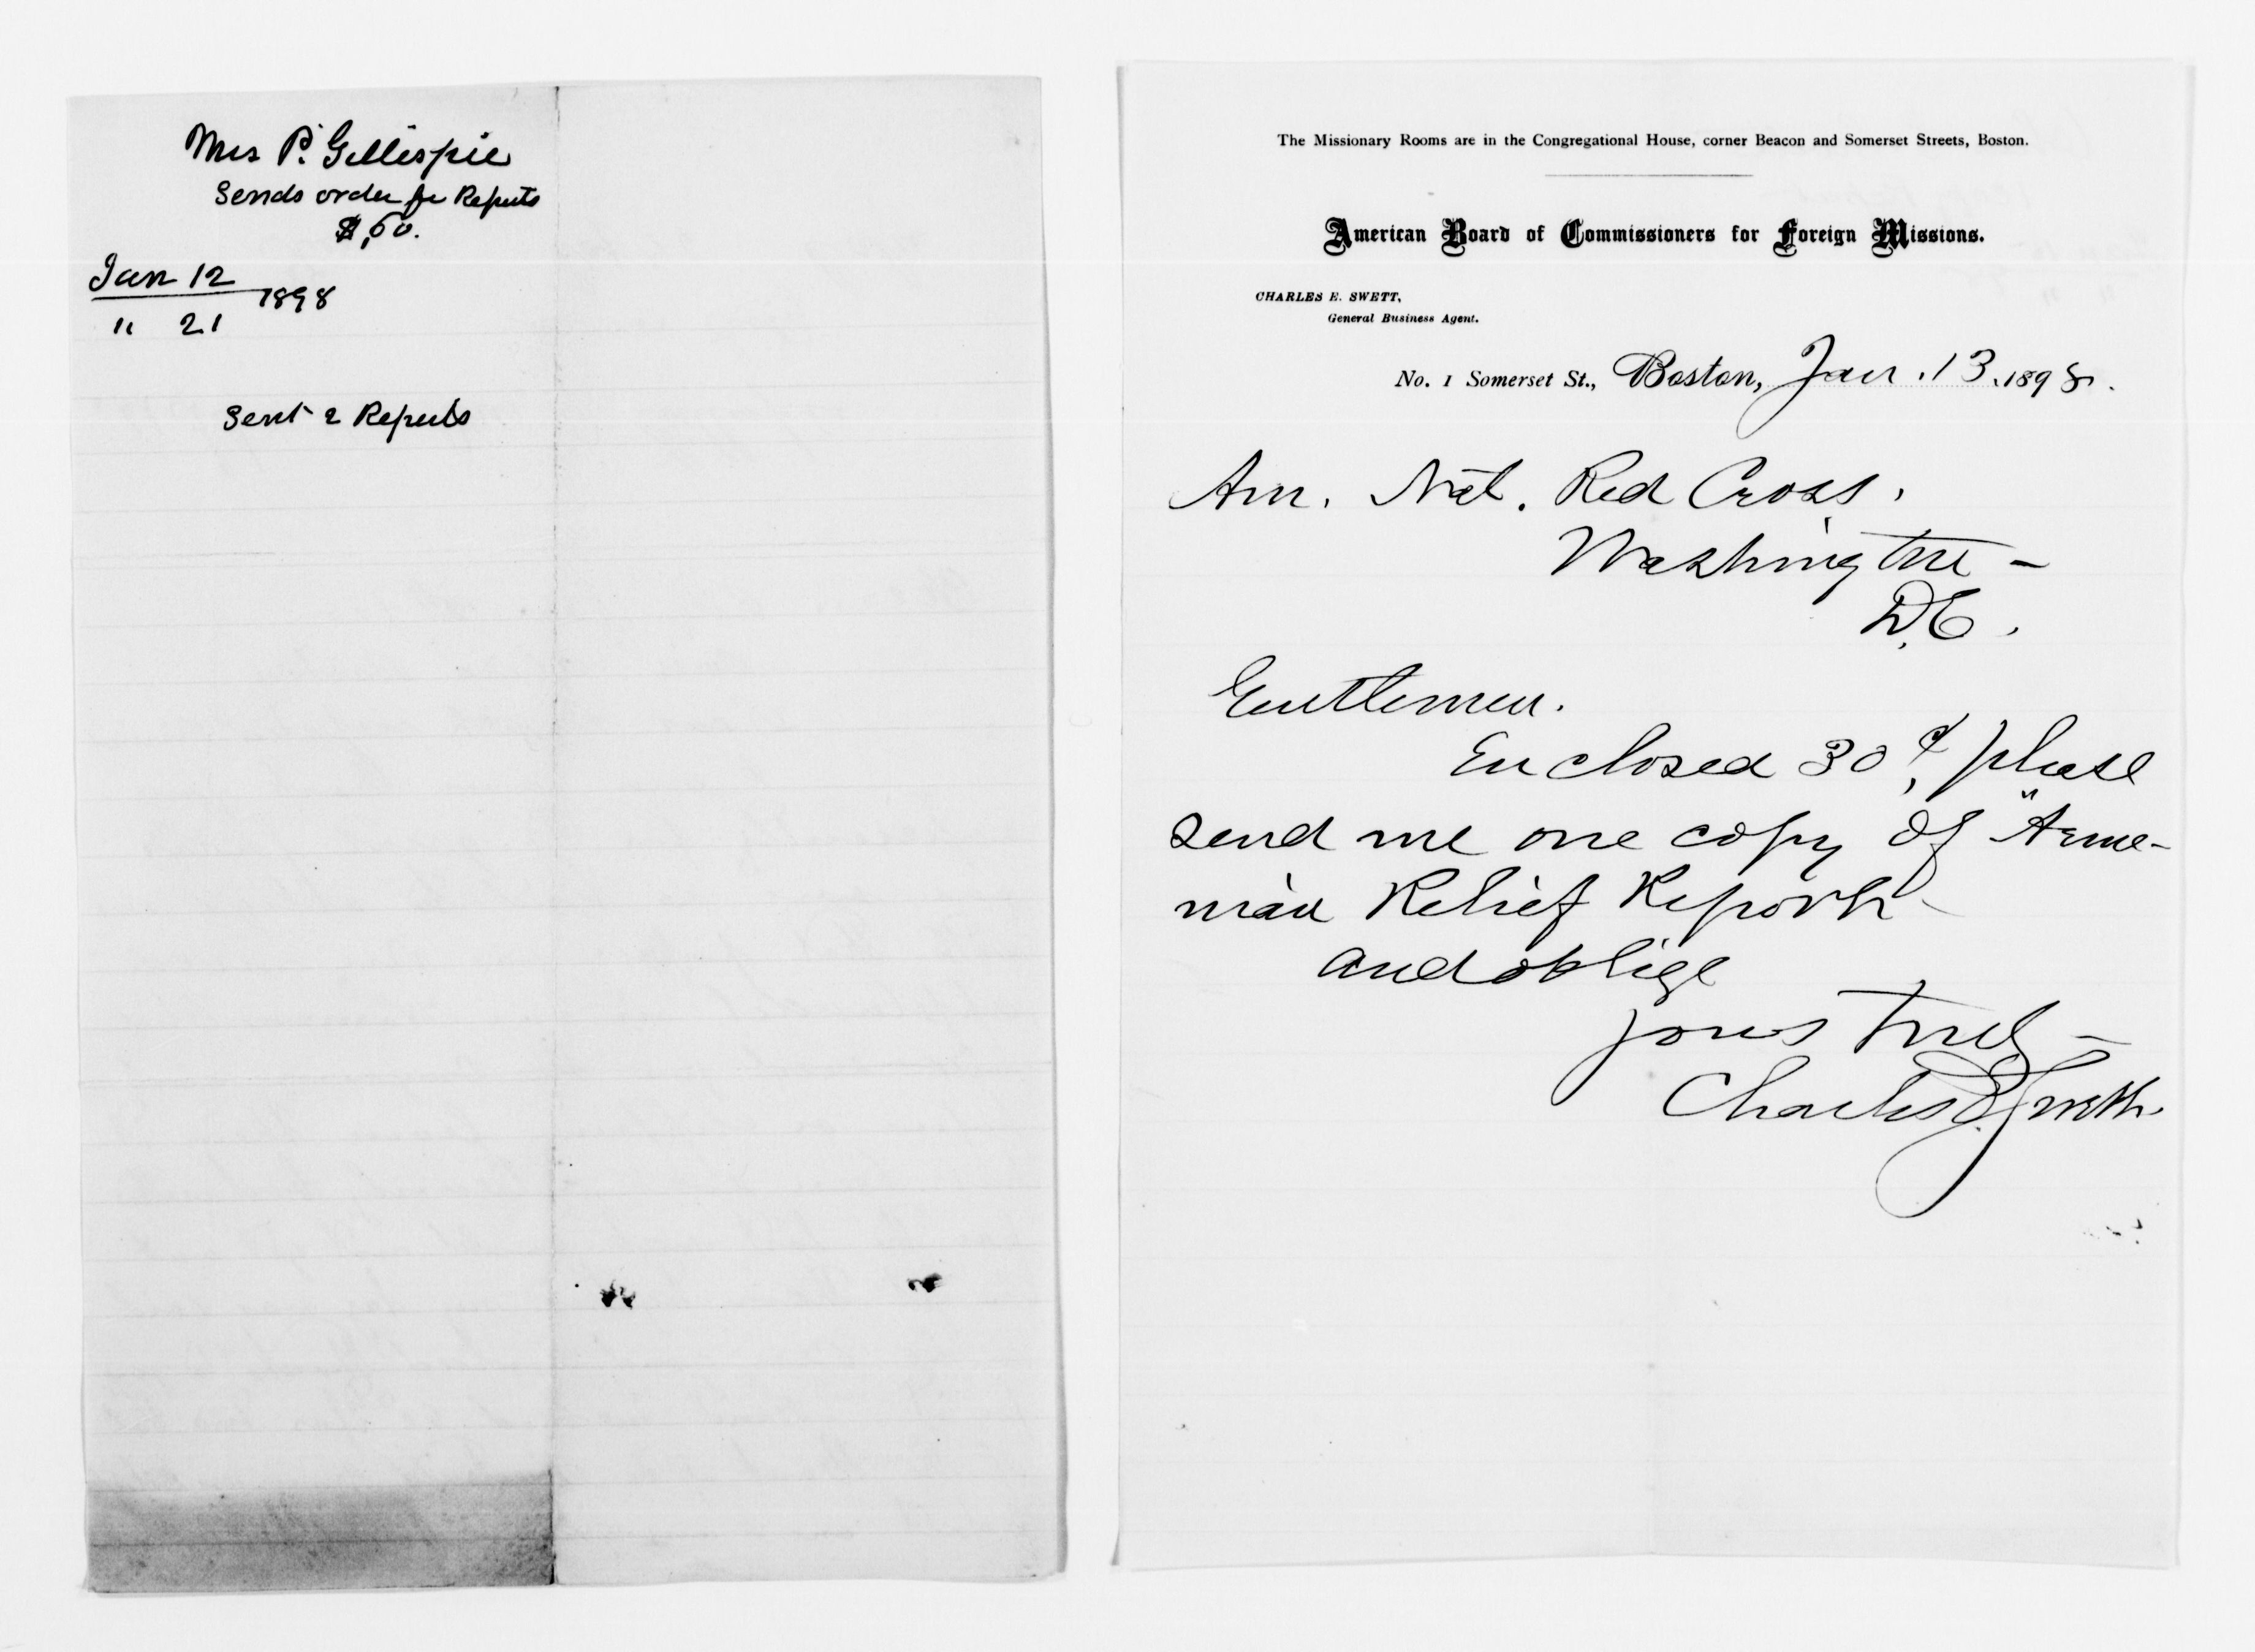 Mrs P. Gillespie
Sends order for Reports
$,60.
Jan 12
1898
" 21
Sent 2 Reports
The Missionary Rooms are in the Congregational House, corner Beacon and Somerset Streets, Boston.
American Board of Commissioners for Foreign Missions.
CHARLES E. SWETT,
General Business Agent.
No. 1 Somerset St., Boston, Jan. 13. 1898.
Am. Nat. Red Cross.
Washington -
D.C.
Gentlemen.
Enclosed 30¢, please
send me one copy of "Arme-
nian Relief Report
and oblige
Yours truly -
Charles E. Swett.